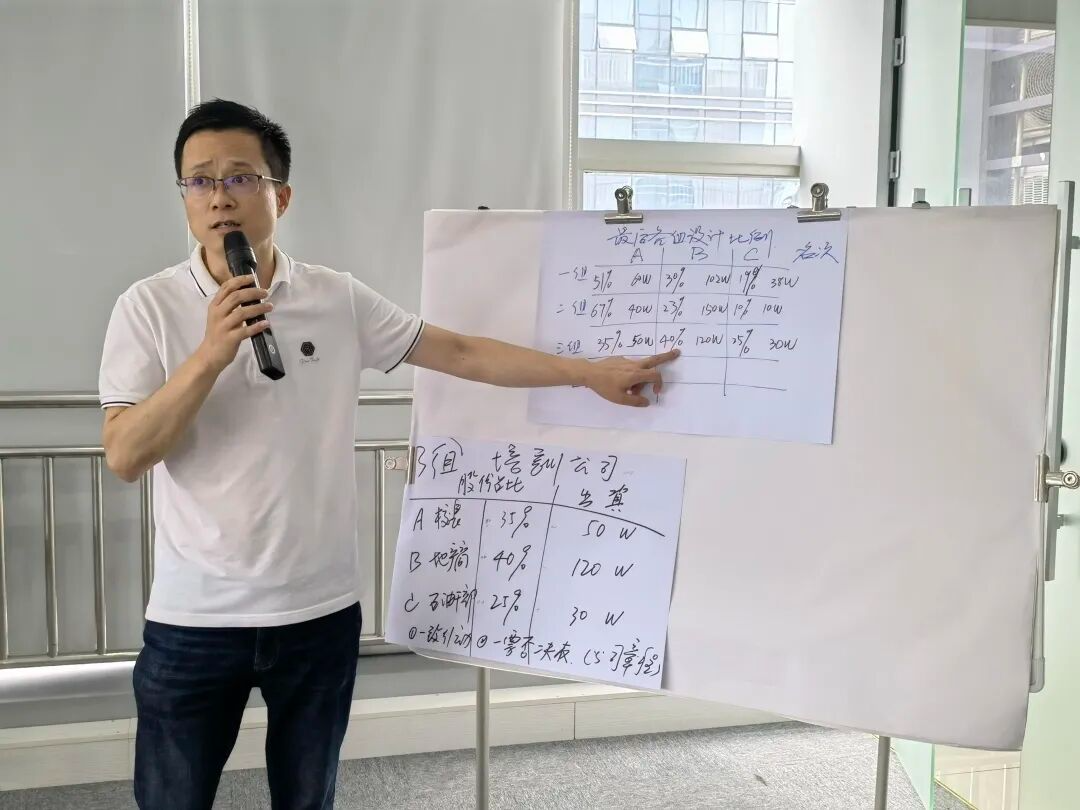 最后各组设计比例
A B C 名次
一组 51% 60W 30% 102W 19% 38W
二组 67% 40W 23% 150W 10% 10W
三组 35% 50W 40% 120W 25% 30W
B组 培训公司
股份占比 出资
A 35% 50W
B 40% 120W
C 25% 30W
①一致行动 ②一票否决权 (公司章程)